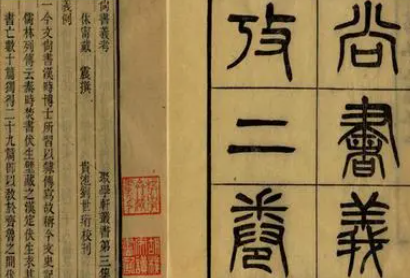 尚書義
攷二卷
尚書義考 聚學軒叢書第三集
休甯戴 震撰 貴池劉世珩校刊
義例
一今文尚書漢時博士所習以隸傳寫故稱今文史記
儒林列傳云秦時焚書伏生壁藏之漢定伏生求其
書亡數十篇獨得二十九篇卽以敎於齊魯之間